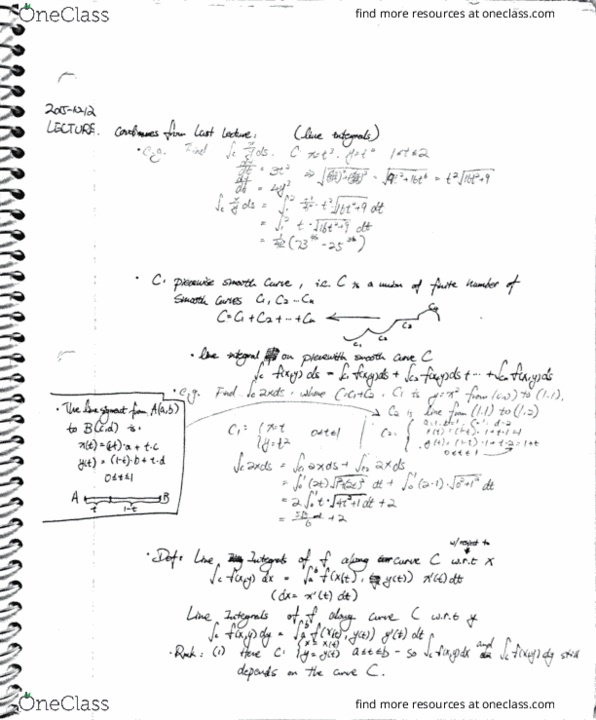 OneClass
find more resources at oneclass.com
LECTURE. Continues from last lecture, (line integrals)
e.g. Find ∫c ds. C: x=t³, y=t⁴ 1≤t≤2
= 3t²
dt = 4t³
= t²√16t²+9
∫c ds = ∫₁² · t²√16t²+9 dt
= ∫₁² t·√16t²+9 dt
= (73 - 25)
· C: piecewise smooth curve, i.e. C is a union of finite number of
smooth curves C1, C2 - Cn
C = C1 + C2 + ··· + Cn
C1 C2 C3 Cn
· line integral on piecewise smooth curve C
∫c f(x,y) ds = ∫c1 f(x,y)ds + ∫c2 f(x,y)ds + ··· + ∫cn f(x,y)ds
· e.g. Find ∫c 2xds, where C=C1+C2, C1 is y=x² from (0,0) to (1,1),
C2 is line from (1,1) to (1,2)
· The line segment from A(a,b)
to B(c,d) is:
x(t) = (1-t)·a + t·c
y(t) = (1-t)·b + t·d
0≤t≤1
A B
t 1-t
C1 = { x=t
y=t² 0≤t≤1
C2: y(t) = (1-t)·1+t·2=1+t
0≤t≤1
∫c 2xds = ∫c1 2xds + ∫c2 2xds
= ∫₀¹ (2t)√1²+(2t)² dt + ∫₀¹ (2·1)·√0²+1² dt
= 2∫₀¹ t·√4t²+1 dt + 2
+ 2
w/ respect to
· Def: Line Integrals of f along curve C w.r.t x
∫c f(x,y) dx = ∫ₐᵇ f(x(t), y(t)) x'(t)dt
(dx = x'(t) dt)
Line Integrals of f along curve C w.r.t y
∫c f(x,y)dy = ∫ₐᵇ f(x(t), y(t)) y'(t) dt
· Rmk: (1) Here C: { x = x(t)
y = y(t) a≤t≤b - so ∫c f(x,y)dx and ∫c f(x,y)dy still
depends on the curve C.
OneClass
find more resources at oneclass.com